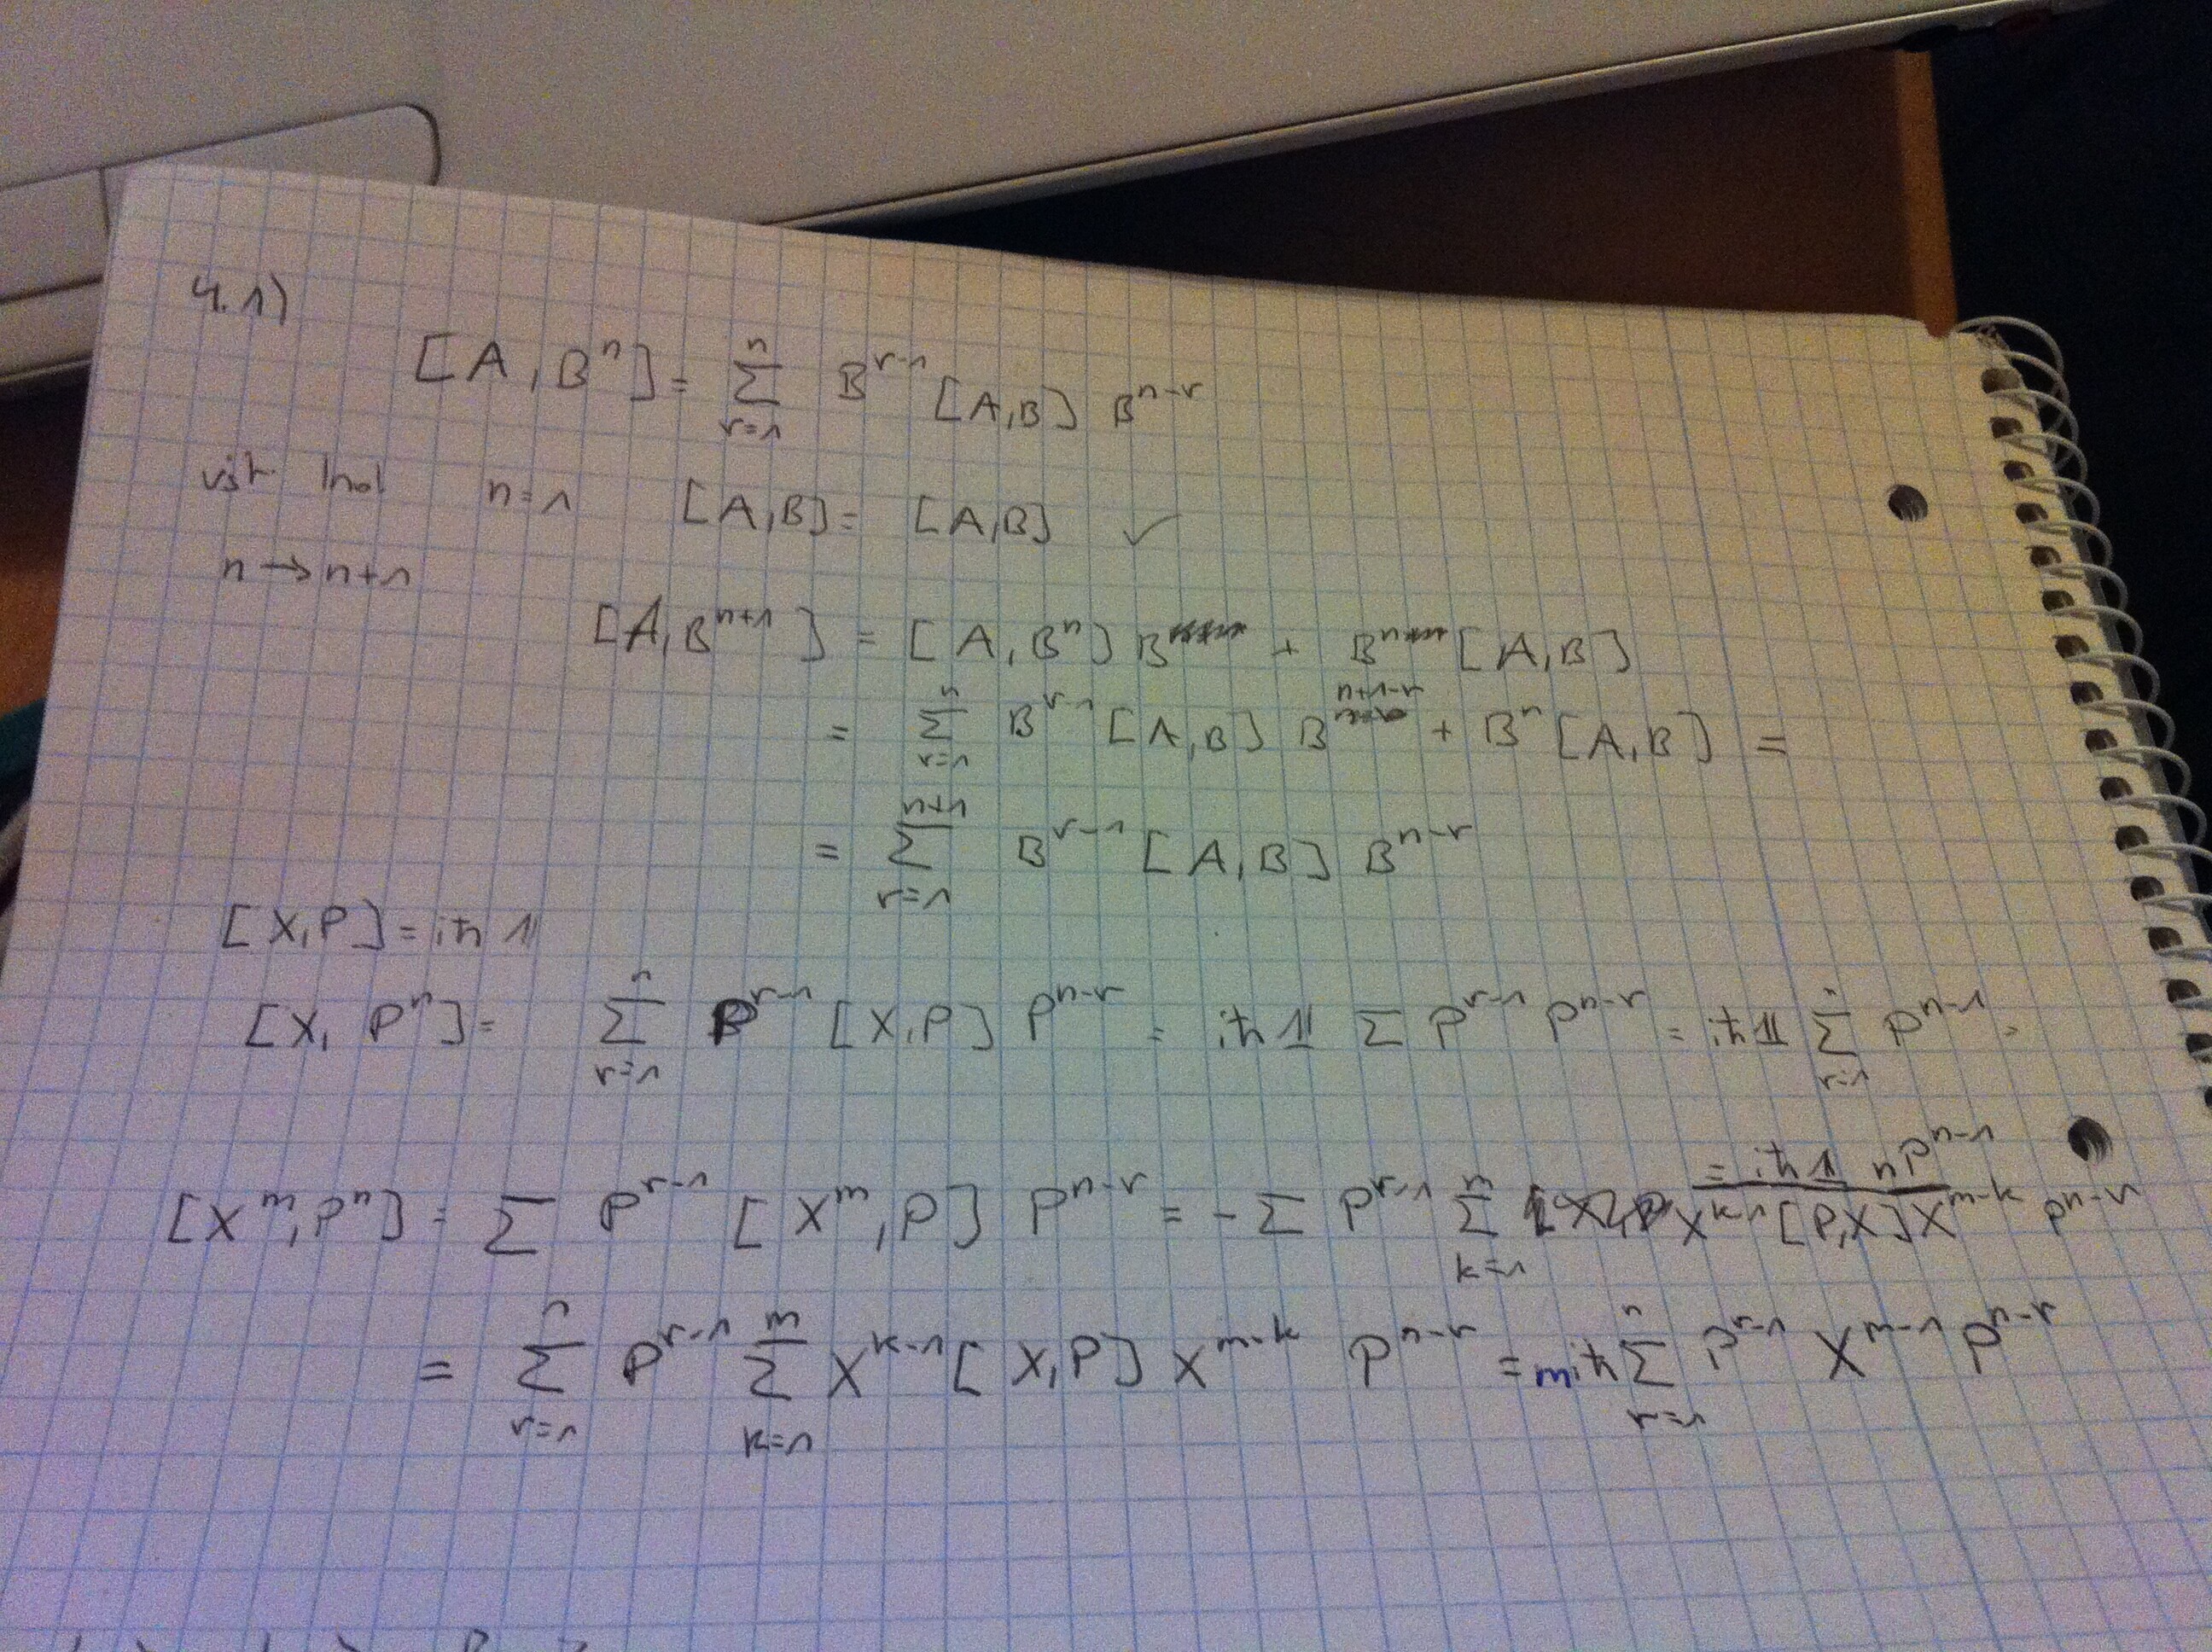 4.1)
[A, Bⁿ] = ∑_{r=1}^{n} B^{r-1} [A,B] B^{n-r}
n=1 [A,B] = [A,B] ✓
n → n+1
[A, B^{n+1}] = [A, Bⁿ] B + Bⁿ [A,B]
= ∑_{r=1}^{n} B^{r-1} [A,B] B^{n+1-r} + Bⁿ [A,B] =
= ∑_{r=1}^{n+1} B^{r-1} [A,B] B^{n-r}
[X,P] = iħ 𝟙
[X, Pⁿ] = ∑_{r=1}^{n} P^{r-1} [X,P] P^{n-r} = iħ 𝟙 ∑ P^{r-1} P^{n-r} = iħ 𝟙 ∑_{r=1}^{n} P^{n-1} =
= iħ 𝟙 n P^{n-1}
[X^m, Pⁿ] = ∑ P^{r-1} [X^m, P] P^{n-r} = - ∑ P^{r-1} ∑_{k=1}^{m} X^{k-1} [P,X] X^{m-k} P^{n-r}
= ∑_{r=1}^{n} P^{r-1} ∑_{k=1}^{m} X^{k-1} [X,P] X^{m-k} P^{n-r} = miħ ∑_{r=1}^{n} P^{r-1} X^{m-1} P^{n-r}